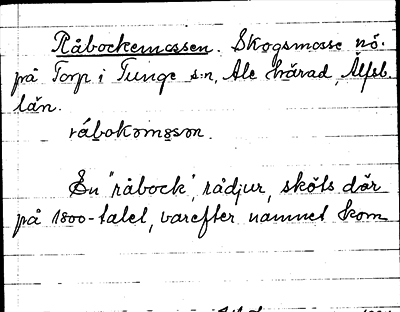 Råbockemossen. Skogsmosse nö.
på Torp i Tunge s:n, Ale härad, Älfsb.
län.
råbokomosson.
En "råbock", rådjur, sköts där
på 1800-talet, varefter namnet kom